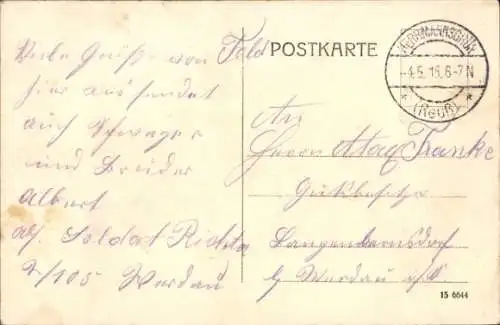 Viele Grüße von Feld
hier aus sendet
auch Schwager
und Bruder
Albert
abs. Soldat Richter
2/105 Werdau
POSTKARTE
HERRMANNSGRÜN
-4.5.16.6-7N
(REUß)
An
Herrn Franke
Gutsbesitzer
Langenbernsdorf
b/ Werdau i/S
15 6644